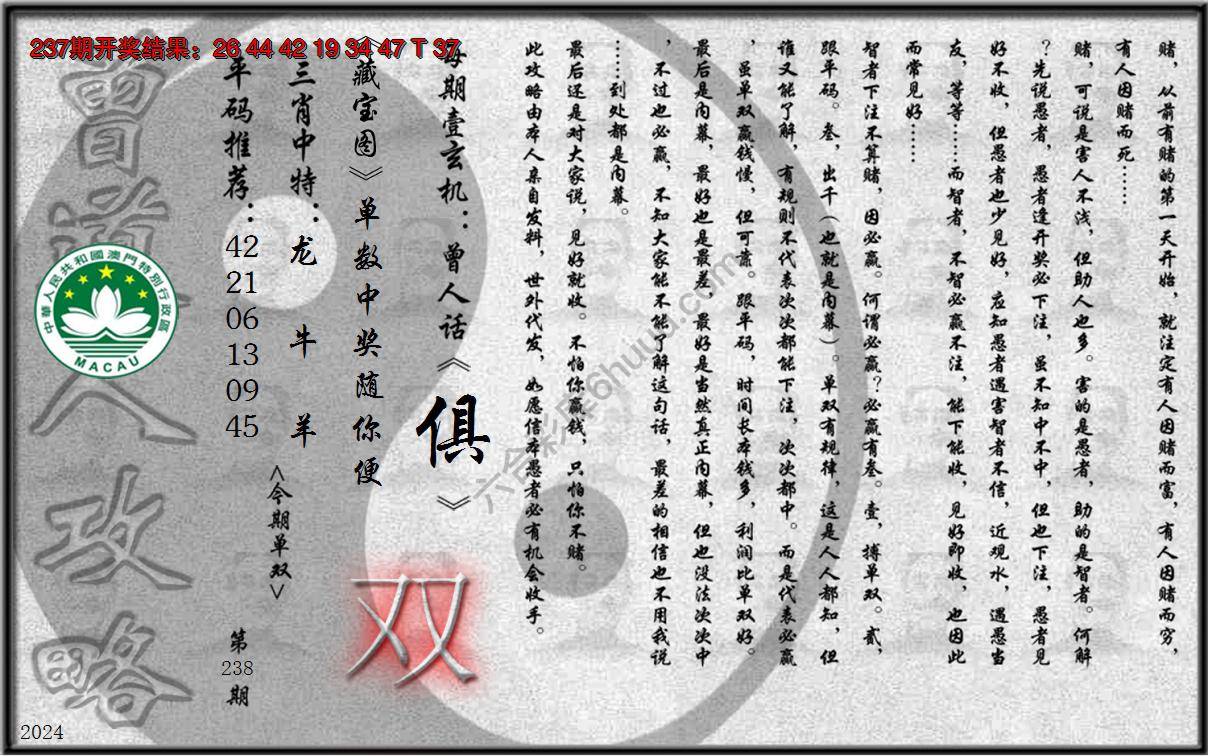 237期开奖结果：26 44 42 19 34 47 T 37
赌，从前有赌的第一天开始，就注定有人因赌而富，有人因赌而穷，
有人因赌而死……
赌，可说是害人不浅，但助人也多。害的是愚者，助的是智者。何解
？先说愚者，愚者逢开奖必下注，虽不知中不中，但也下注，愚者见
好不收，但愚者也少见好，应知愚者遇害智者不信，近观水，遇愚当
友，等等……而智者，不智必赢不注，能下能收，见好即收，也因此
而常见好……
智者下注不算赌，因必赢。何谓必赢？必赢有叁。壹，搏单双。贰，
跟平码。叁，出千（也就是内幕）。单双有规律，这是人人都知，但
谁又能了解，有规则不代表次次都能下注，次次都中。而是代表必赢
，虽单双赢钱慢，但可靠。跟平码，时间长本钱多，利润比单双好。
最后是内幕，最好也是最差，最好是当然真正内幕，但也没法次次中
，不过也必赢，不知大家能不能了解这句话，最差的相信也不用我说
……到处都是内幕。
最后还是对大家说，见好就收。不怕你赢钱，只怕你不赌。
此攻略由本人亲自发料，世外代发，如愿信本愚者必有机会收手。
每期壹玄机：曾人话《俱》
《藏宝图》单数中奖随你便
双
三肖中特：龙 牛 羊
<今期单双>
平码推荐：42 21 06 13 09 45
第238期
曾道人攻略
中華人民共和國澳門特別行政區
MACAU
2024
六合彩库6huuu.com